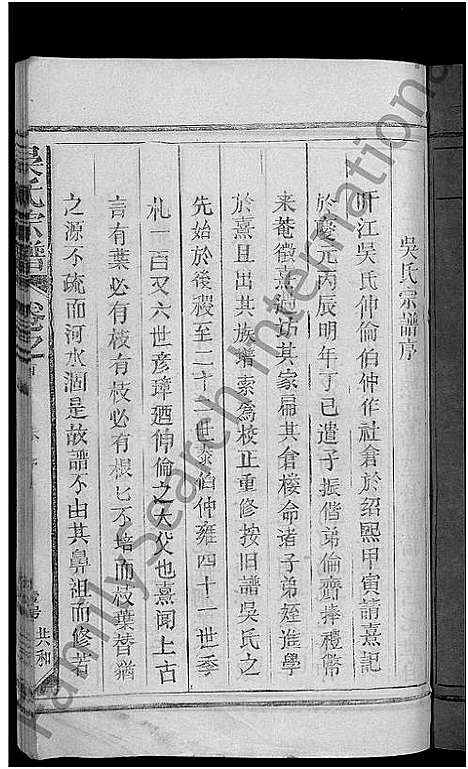 吳氏宗譜序
盱江吳氏伸倫伯仲作社倉於紹熙甲寅請熹記
於慶元丙辰明年丁巳遣子振偕弟倫齋捧禮幣
來菴徵熹過訪其家扁其倉樓命諸子弟姪進學
於熹且出其族譜索為校正重修按旧譜吳氏之
先始於後稷至二十二世泰伯仲雍四十一世季
札一百又六世彥璋廼伸倫之大父也熹聞上古
言有葉必有枝有枝必有根匕不培而枝葉替猶
之源不疏而河水涸是故譜不由其鼻祖而修者
吳氏宗譜 卷之
共和
FamilySearch International